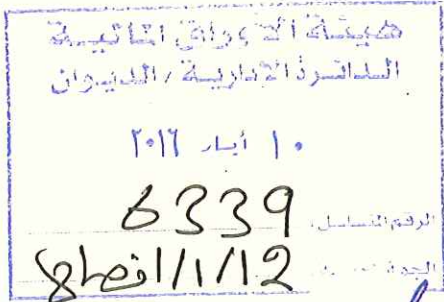 هيئة الأوراق المالية
الدائرة الإدارية / الديوان
١٠ أيار ٢٠١٦
الرقم المتسلسل: 6339
الجهة المختصة: 12/1/1 افصاح